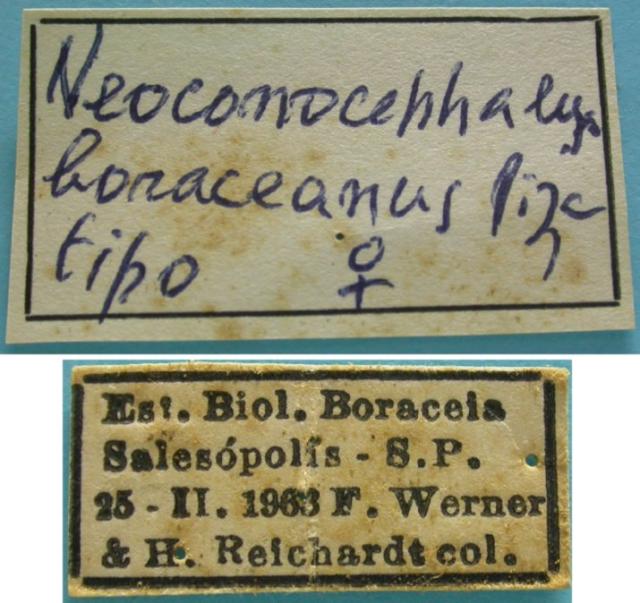 Neoconocephalus
boraceanus Piza
tipo ♀
Est. Biol. Boraceia
Salesópolis - S.P.
25 - II. 1963 F. Werner
& H. Reichardt col.